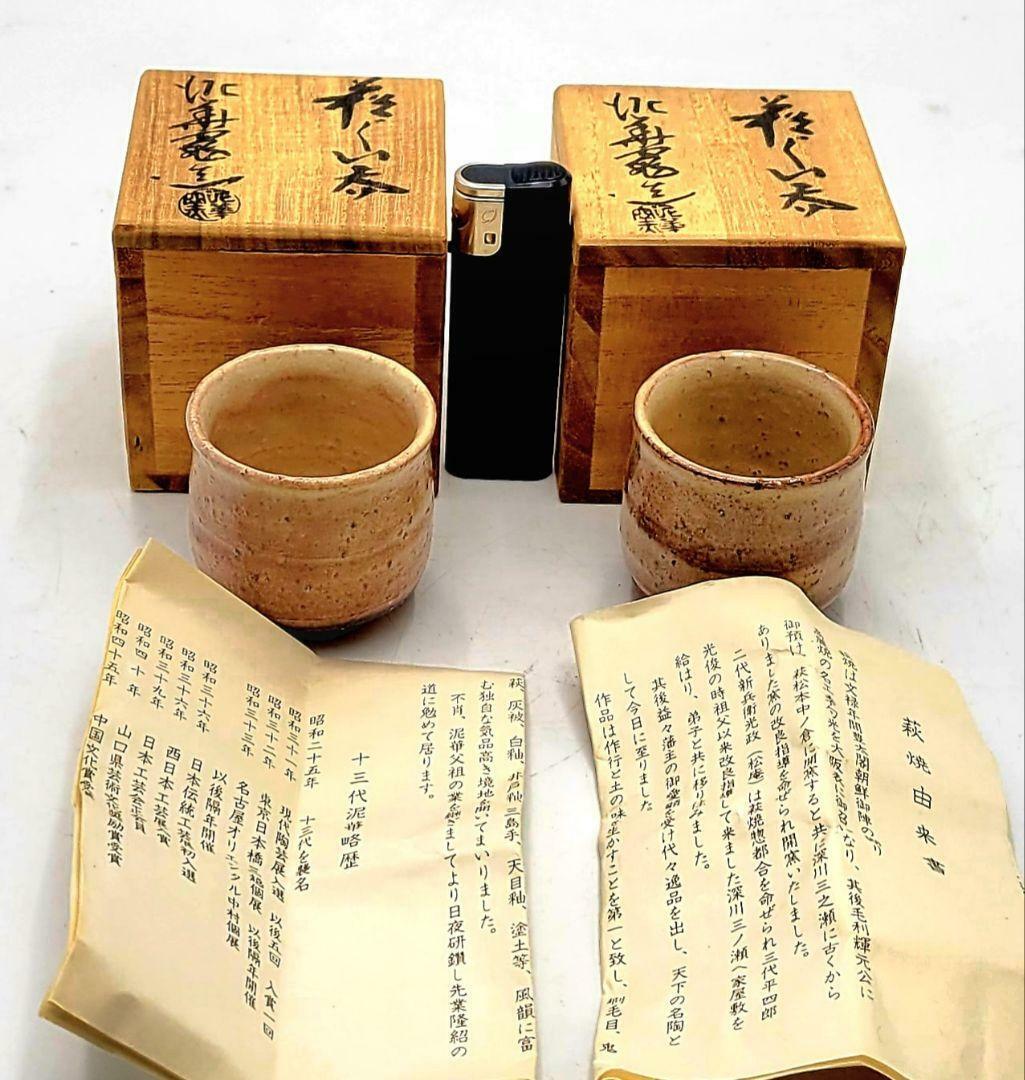 萩ぐい呑
泥華窯
萩ぐい呑
泥華窯
萩焼由来書
萩焼は文禄年間豊太閤朝鮮御陣のより
高麗焼の名工等の米を大阪表に御召になり、其後毛利輝元公に
御預け、萩松本中ノ倉に開窯すると共に深川三之瀬に古くから
ありました窯の改良指導を命ぜられ開窯いたしました。
二代新兵衛光政(松庵)は萩焼惣都合を命ぜられ三代平四郎
光俊の時祖父以来改良指導して来ました深川三ノ瀬へ家屋敷を
給はり、弟子と共に移り住みました。
其後益々藩主の御愛顧を受け代々逸品を出し、天下の名陶と
して今日に至りました
作品は作行と土の味を生かすことを第一と致し、刷毛目、鬼
萩、灰被、白釉、井戸釉三島手、天目釉、塗土等、風韻に富
む独自な気品高き境地を拓いてまいりました。
不肖、泥華父祖の業を継ぎましてより日夜研鑽し先業隆紹の
道に勉めて居ります。
十三代泥華略歴
昭和二十五年 十三代を襲名
昭和三十一年 現代陶芸展入選 以後五回 入賞一回
昭和三十二年 東京日本橋三越個展 以後隔年開催
昭和三十三年 名古屋オリエンタル中村個展
以後隔年開催
昭和三十六年 日本伝統工芸展初入選
昭和三十六年 西日本工芸展入賞
昭和三十九年 日本工芸会正員
昭和四十年 山口県芸術文化振興賞受賞
昭和四十五年 中国文化賞受賞